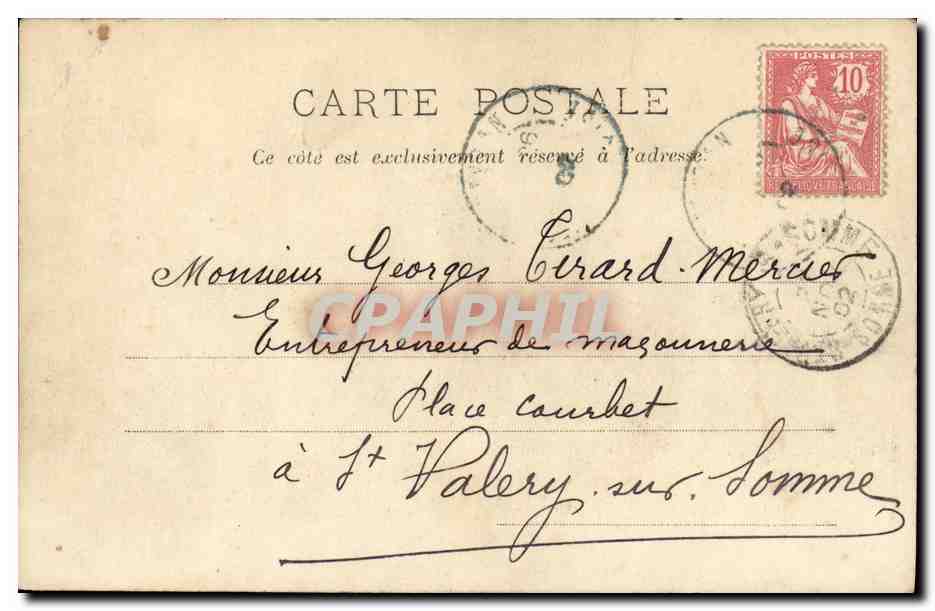 POSTES
10
CARTE POSTALE
Ce côté est exclusivement réservé à l'adresse.
Monsieur Georges Tirard-Mercier
Entrepreneur de maçonnerie
Place Courbet
à St Valery-sur-Somme
SOMME
02
CPAPHIL